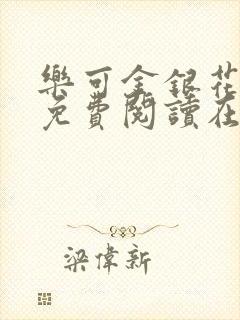 樂可金銀花
免費閱讀在
梁偉新